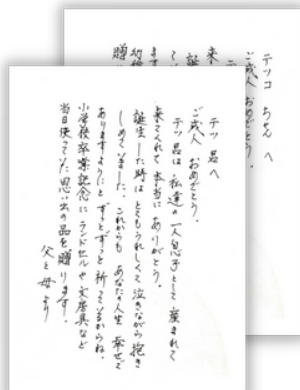 テツコ ちゃん へ
ご成人 おめでとう。
テツ君へ
ご成人 おめでとう。
テツ君は 私達の一人息子として 産まれて
来てくれて 本当に ありがとう。
誕生した時は とてもうれしくて 泣きながら 抱き
しめていました。これからも あなたの人生 幸せで
ありますようにと ずっとずっと祈っているからね。
小学校卒業記念に ランドセルや文房具など
当日使っていた思い出の品を贈ります。
父と母より